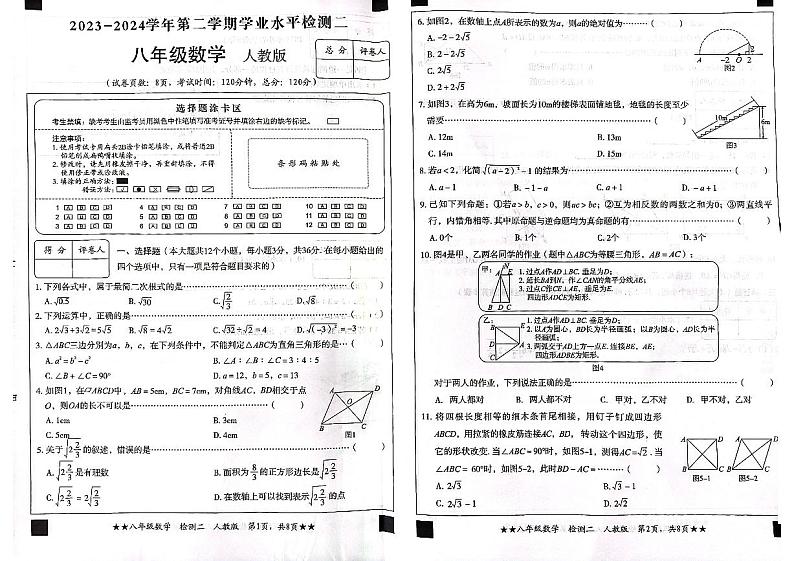 2023-2024学年第二学期学业水平检测二
八年级数学 人教版
总 分 评卷人
(试卷页数：8页，考试时间：120分钟，总分：120分)
选择题涂卡区
考生禁填：缺考考生由监考员用黑色中性笔填写准考证号并填涂右边的缺考标记。
注意事项：
1. 使用考试卡用石头2B涂卡铅笔填涂，或将普通2B
铅笔削成扁鸭嘴状填涂。
2. 修改时，请先用橡皮擦干净，再重新填涂，不得
使用修正带或涂改液。
3. 填涂的正确方法：
错误方法：
条形码粘贴处
1 A B C D 4 A B C D 7 A B C D 10 A B C D
2 A B C D 5 A B C D 8 A B C D 11 A B C D
3 A B C D 6 A B C D 9 A B C D 12 A B C D
得 分 评卷人
一、选择题（本大题共12个小题，每小题3分，共36分.在每小题给出的
四个选项中，只有一项是符合题目要求的）
1. 下列各式中，属于最简二次根式的是 ( )
A. √0.5 B. √30 C. √(2/3) D. √8
2. 下列运算中，正确的是 ( )
A. 2√3+3√2=5√5 B. √8=4√2 C. √32÷√2=4 D. √(-3)²=-3
3. △ABC三边分别为a，b，c，在下列条件中，不能判定△ABC为直角三角形的是 ( )
A. a²=b²-c² B. ∠A：∠B：∠C=3：4：5
C. ∠B+∠C=90° D. a=12，b=5，c=13
4. 如图1，在▱ABCD中，AB=5cm，BC=7cm，对角线AC，BD相交于点
O，则OA的长不可以是 ( )
A. 1cm B. 3cm
C. 5cm D. 4cm
A D O B C
图1
5. 关于√(2 2/3)的叙述，错误的是 ( )
A. √(2 2/3)是有理数 B. 面积为8/3的正方形边长是√(2 2/3)
C. √(2 2/3)=2√(2/3) D. 在数轴上可以找到表示√(2 2/3)的点
★★八年级数学 检测二 人教版 第1页，共8页★★
6. 如图2，在数轴上点A所表示的数为a，则a的绝对值为 ( )
A. -2-2√5
B. 2-2√5
C. 2√5
D. 2+2√5
A -2 O 2
图2
7. 如图3，在高为6m，坡面长为10m的楼梯表面铺地毯，地毯的长度至少
需要 ( )
A. 12m B. 13m
C. 14m D. 15m
10m 6m
图3
8. 若a<2，化简√(a-2)²-1的结果为 ( )
A. a-1 B. -1-a C. a+1 D. -a+1
9. 已知下列命题：①若a>b，c>0，则ac>bc；②互为相反数的两数之和为0；③两直线平
行，内错角相等.其中原命题与逆命题均为真命题的有 ( )
A. 0个 B. 1个 C. 2个 D. 3个
10. 图4是甲，乙两名同学的作业（题中△ABC为等腰三角形，AB=AC）：
甲：
1. 过点A作AD⊥BC,垂足为D；
2. 延长BA到N，作∠CAN的角平分线AE；
3. 过点C作CE⊥AE，垂足为E.
四边形ADCE为矩形.
乙：
1. 过点A作AD⊥BC,垂足为D；
2. 以A为圆心，BD长为半径画弧；以B为圆心，AD长为半
径画弧；
3. 两弧交于AD上方一点E.连接BE，AE；
四边形ADBE为矩形.
图4
对于两人的作业，下列说法正确的是 ( )
A. 两人都对 B. 两人都不对 C. 甲对，乙不对 D. 甲不对，乙对
11. 将四根长度相等的细木条首尾相接，用钉子钉成四边形
ABCD，用拉紧的橡皮筋连接AC，BD，转动这个四边形，使
它的形状改变.当∠ABC=90°时，如图5-1，测得AC=√2.当
∠ABC=60°时，如图5-2，此时BD-AC= ( )
A. 2√3 B. √3-1
C. 2√3-1 D. 2√2
A D B C
图5-1
A D B C
图5-2
★★八年级数学 检测二 人教版 第2页，共8页★★